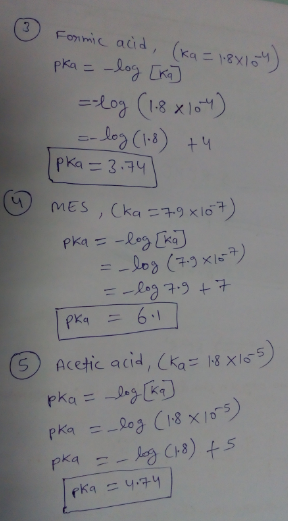 ③ Formic acid, (Ka = 1.8×10⁻⁴)
pKa = -log [Ka]
=-log (1.8 ×10⁻⁴)
=-log(1.8) +4
pKa = 3.74
④ MES, (Ka =7.9 ×10⁻⁷)
pKa = -log[Ka]
= -log (7.9 ×10⁻⁷)
= -log 7.9 + 7
pKa = 6.1
⑤ Acetic acid, (Ka = 1.8 ×10⁻⁵)
pKa = -log[Ka]
pKa = -log (1.8 ×10⁻⁵)
pKa = - log (1.8) + 5
pKa = 4.74